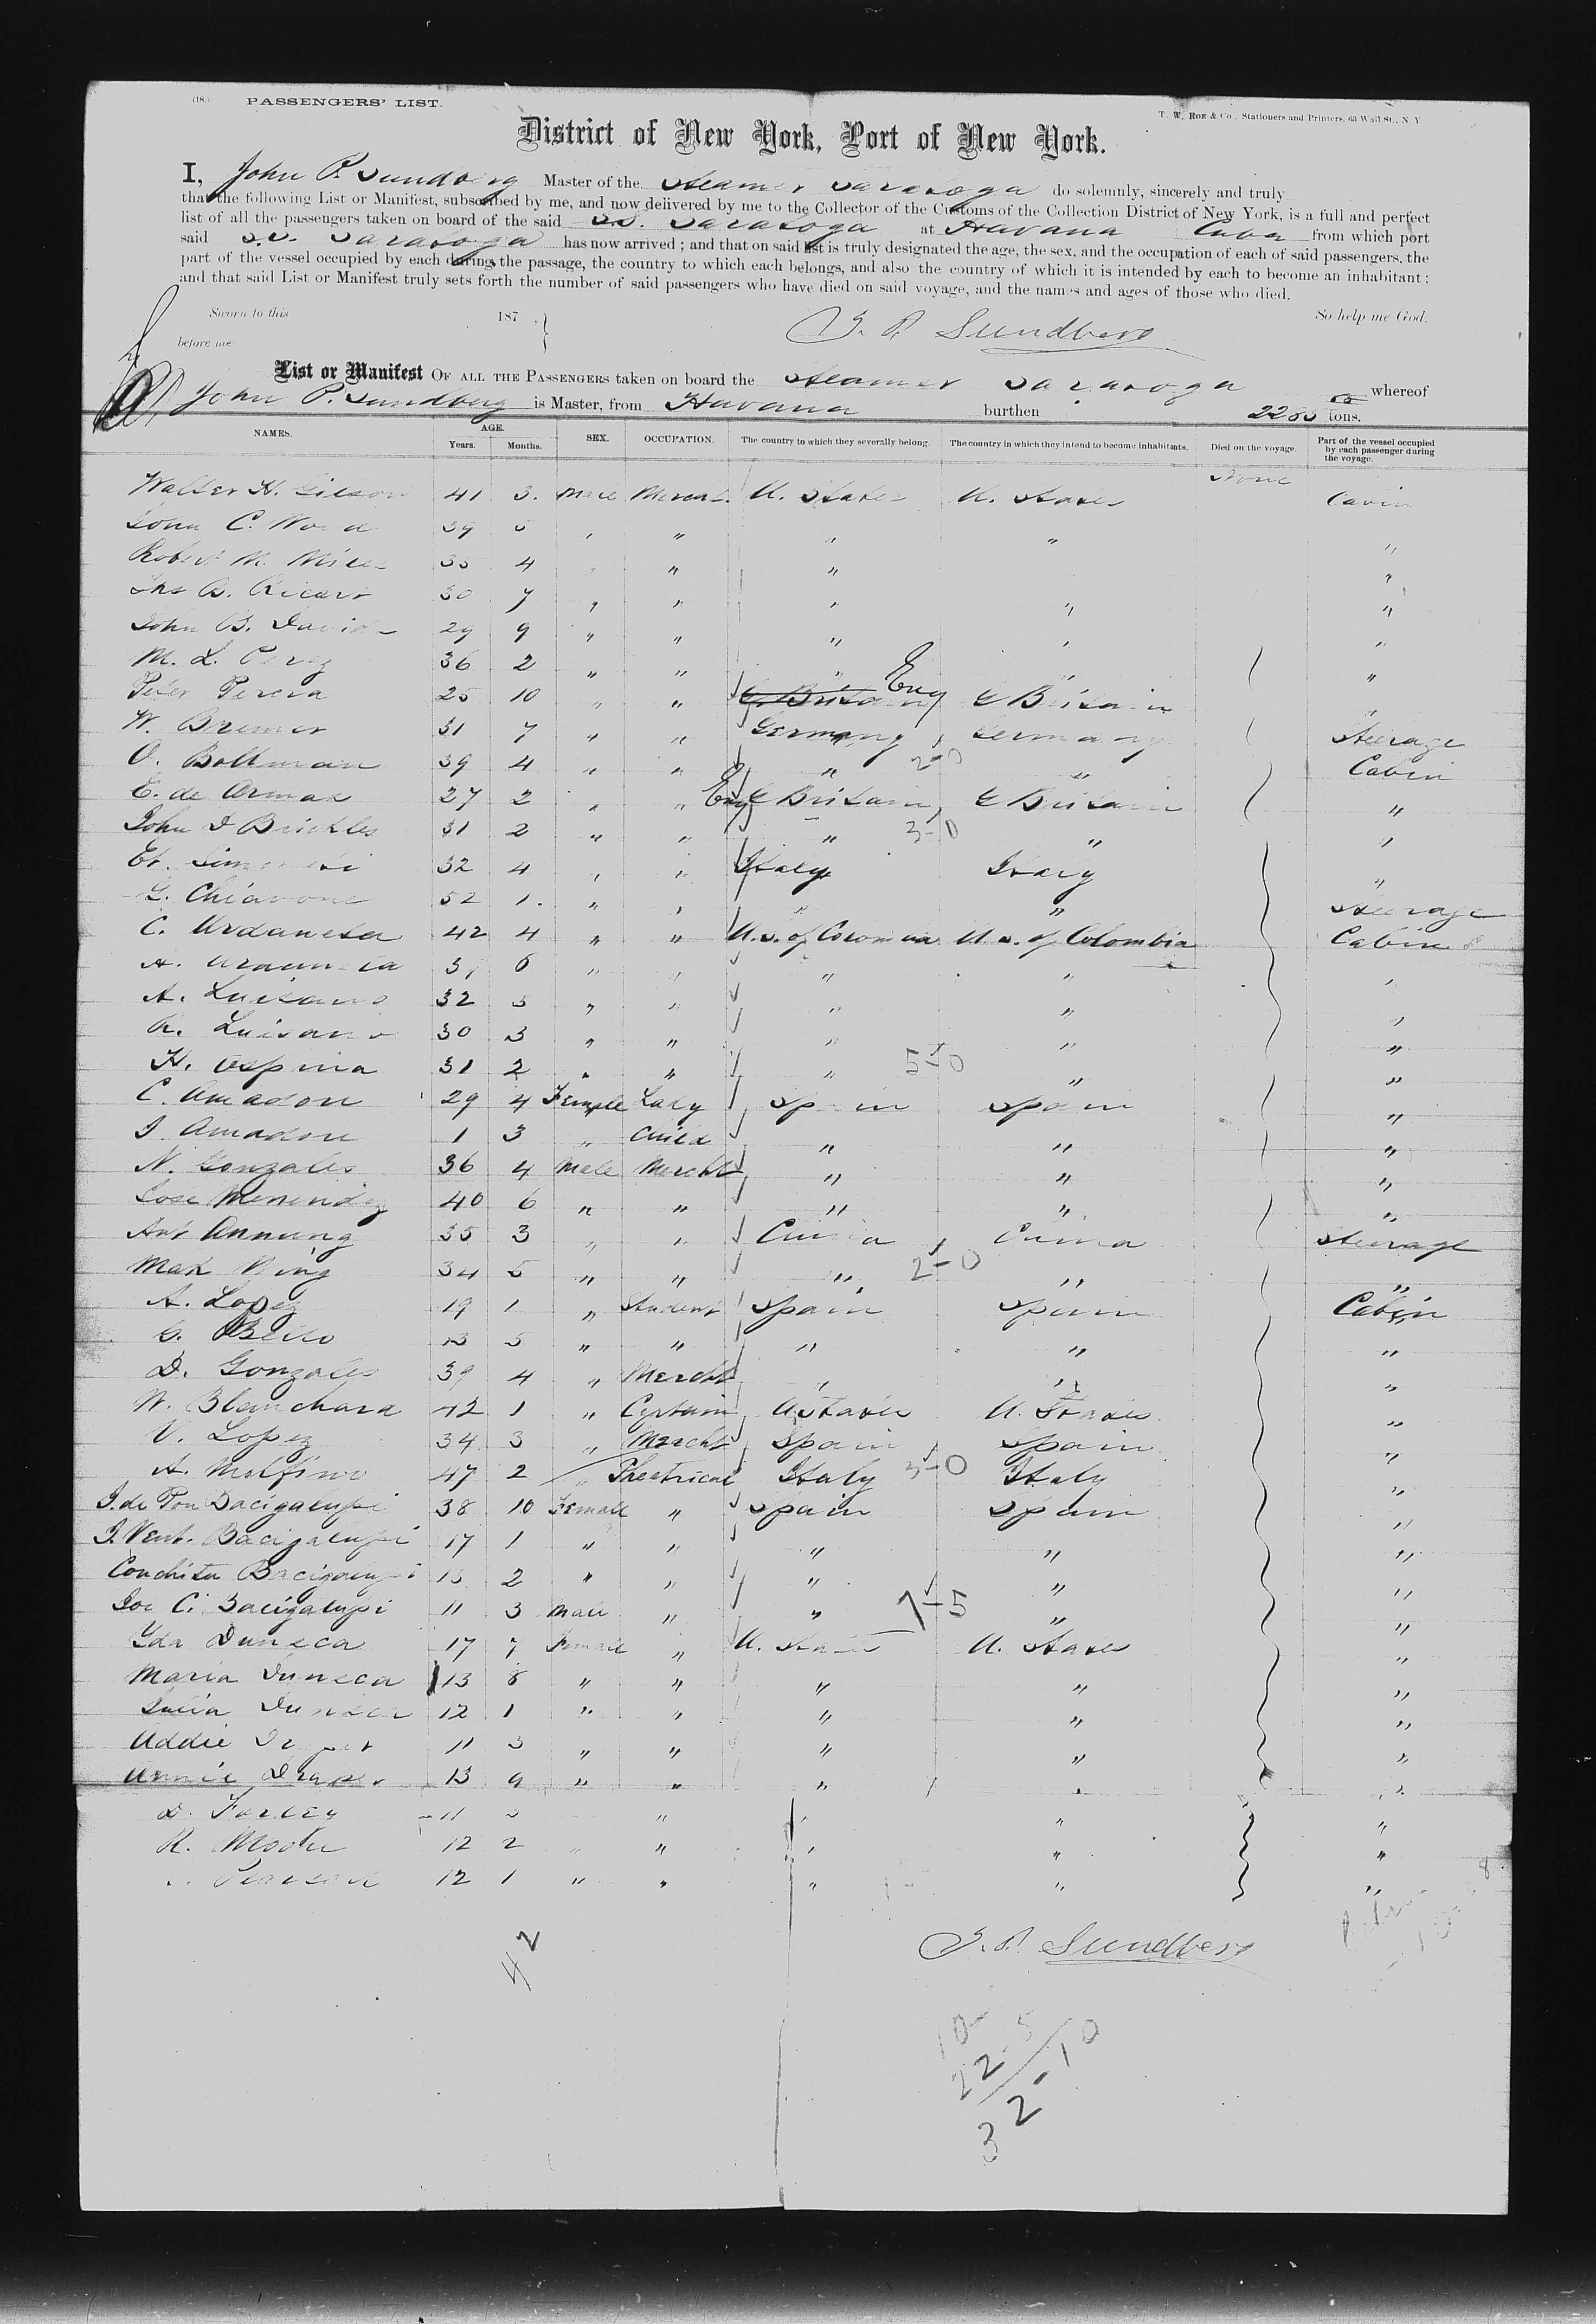 (18.) PASSENGERS' LIST.
T. W. ROE & Co., Stationers and Printers, 63 Wall St., N. Y.
District of New York, Port of New York.
I, John P. Sundberg Master of the Steamer Saratoga do solemnly, sincerely and truly
that the following List or Manifest, subscribed by me, and now delivered by me to the Collector of the Customs of the Collection District of New York, is a full and perfect
list of all the passengers taken on board of the said S.S. Saratoga at Havana Cuba from which port
said S.S. Saratoga has now arrived; and that on said list is truly designated the age, the sex, and the occupation of each of said passengers, the
part of the vessel occupied by each during the passage, the country to which each belongs, and also the country of which it is intended by each to become an inhabitant;
and that said List or Manifest truly sets forth the number of said passengers who have died on said voyage, and the names and ages of those who died.
Sworn to this 187 So help me God.
before me J. P. Sundberg
List or Manifest OF ALL THE PASSENGERS taken on board the Steamer Saratoga whereof
John P. Sundberg is Master, from Havana burthen 2280 tons.
NAMES. AGE. Years. Months. SEX. OCCUPATION. The country to which they severally belong. The country in which they intend to become inhabitants. Died on the voyage. Part of the vessel occupied by each passenger during the voyage.
Walter H. 41 3. Male Merch. U. States U. States None Cabin
John C. Wood 39 5 " " " " "
Robert M. 35 4 " " " "
Jno B. Ricart 30 7 " " " " "
John B. Davids 29 9 " " " " "
M. L. Perez 36 2 " " " " "
Peter Pereia 25 10 " " G. Britain Eng G Britain "
W. Bremer 31 7 " " Germany Germany Steerage
O. Boltman 39 4 " " " 2-0 " Cabin
E. de Armas 27 2 " " Eng G Britain G Britain "
John D Brickles 31 2 " " " 3-0 " "
Et. 32 4 " " Italy Italy "
G. Chiavone 52 1. " " " " Steerage
C. Urdaneta 42 4 " " U.S. of Colombia U.S. of Colombia Cabin
A. Urdaneta 6 " " " " "
A. Luisano 32 3 " " " " "
R. Luisano 30 3 " " " " "
H. Ospina 31 2 " " " 5-0 " "
C. Amadore 29 4 Female Lady Spain Spain "
J. Amadore 1 3 " Child " " "
N. Gonzales 36 4 Male Mercht " " "
Jose Menendez 40 6 " " " " "
Ant Annung 35 3 " " China China Steerage
Mak Wing 34 5 " " " 2-0 " "
A. Lopez 19 1 " Student Spain Spain Cabin
C. Bello 13 5 " " " " "
D. Gonzales 39 4 " Mercht " " "
W. Blanchard 42 1 " Captain U States U. States "
V. Lopez 34 3 " Mercht Spain Spain "
A. Molfino 47 2 " Theatrical Italy 3-0 Italy "
J. de Pou Bacigalupi 38 10 Female " Spain Spain "
J. Vent. Bacigalupi 17 1 " " " " "
Conchita Bacigalupi 15 2 " " " " "
Joe C. Bacigalupi 11 3 Male " " 7-5 " "
Ida Duneca 17 7 Female " U. States U. States "
Maria Duneca 13 8 " " " " "
Julia Duneca 12 1 " " " " "
Addie 11 3 " " " " "
Annie Draper 13 9 " " " " "
D. Farley 11 3 " " " "
R. Moore 12 2 " " " " "
Pearson 12 1 " " " " "
42
J. P. Sundberg
10-
22-5
32-10